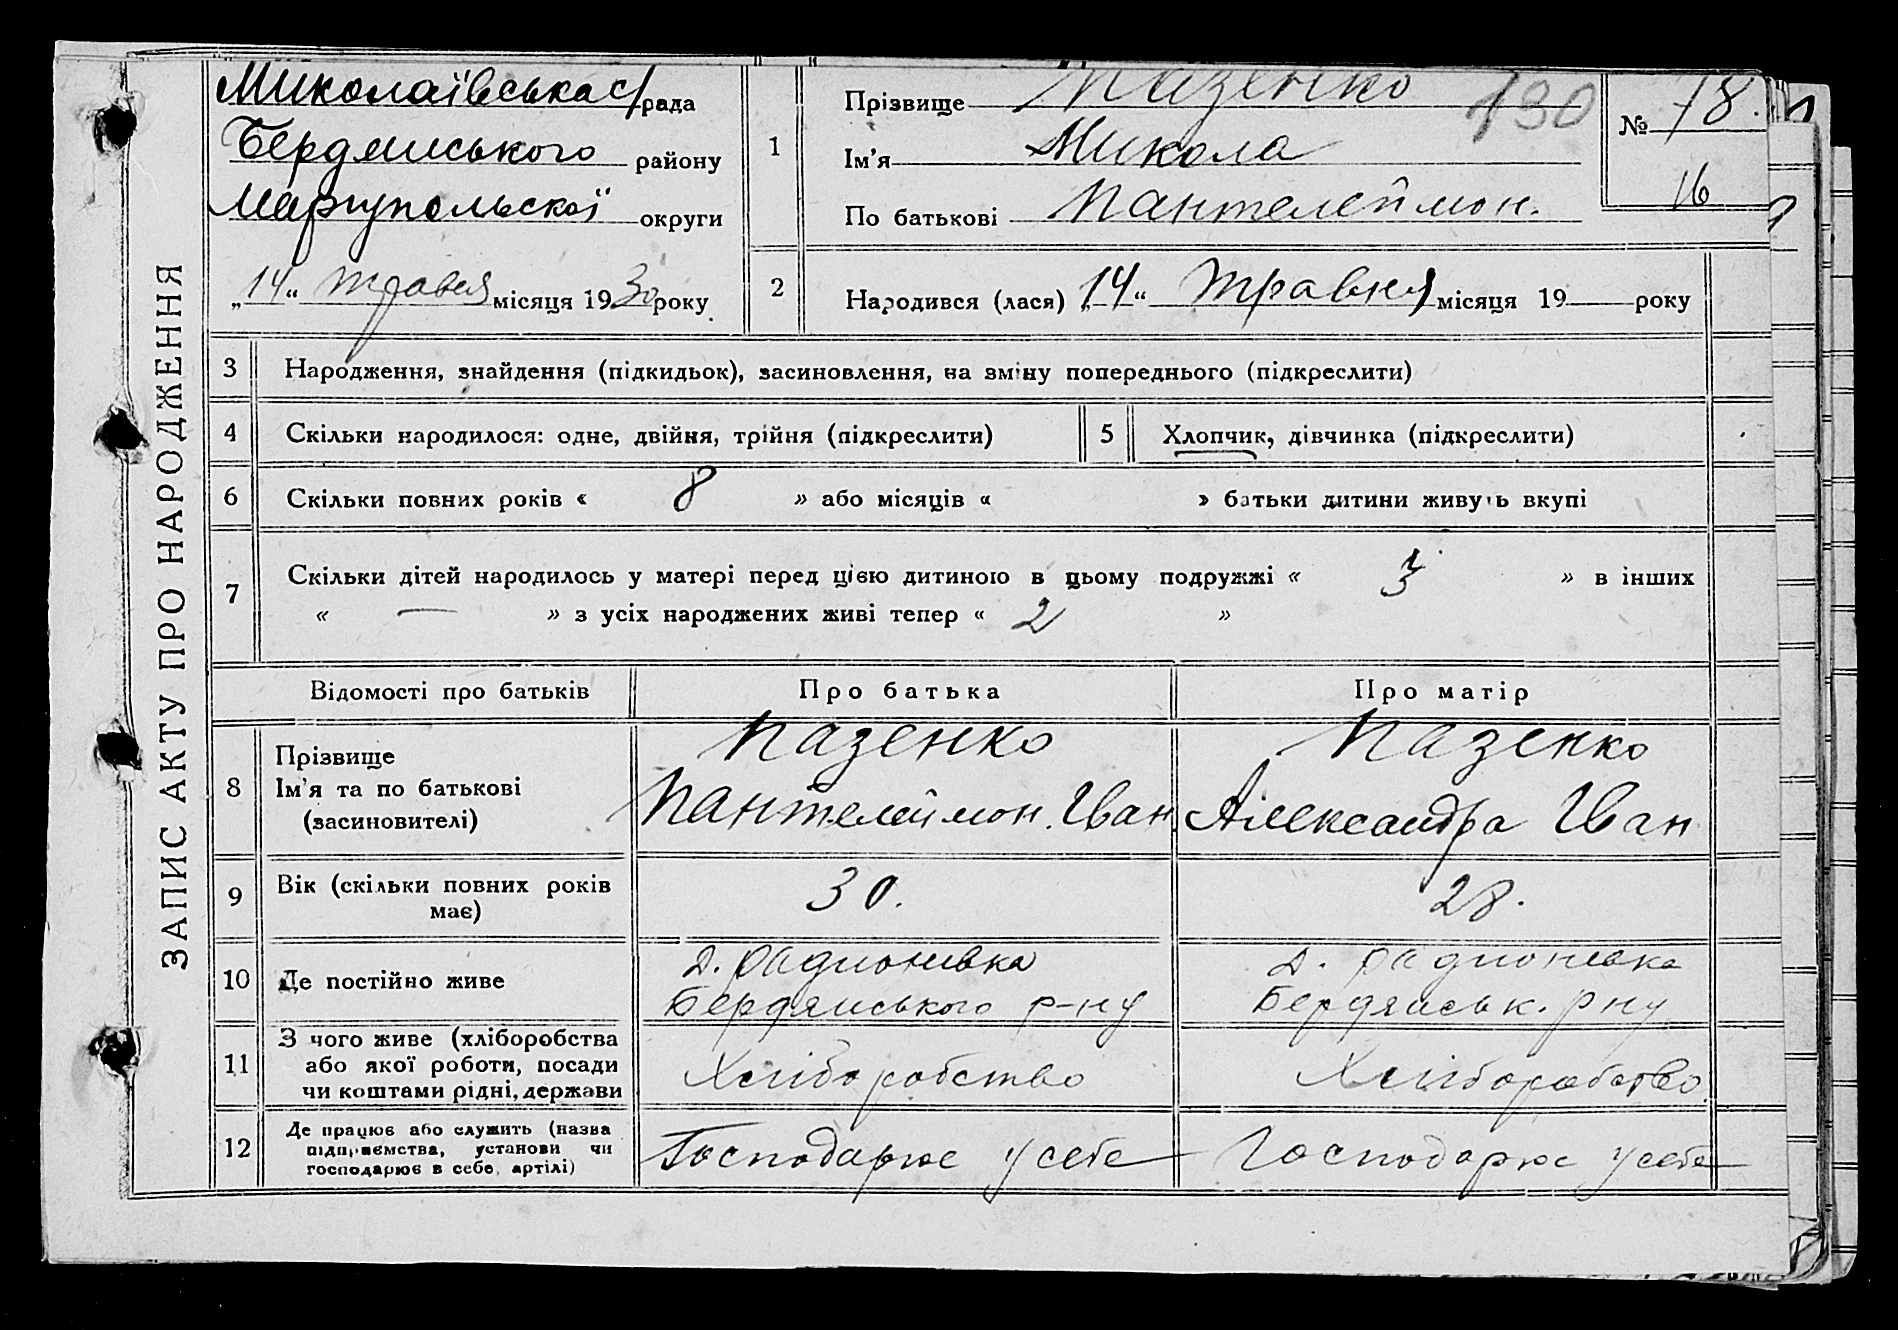 ЗАПИС АКТУ ПРО НАРОДЖЕННЯ
Миколаївська с/рада
Бердянського району
Маріупольскої округи
„14“ травня місяця 1930 року
1
Прізвище Пазенко
130
Ім’я Микола
По батькові Пантелеймон.
№ 78.
16
2
Народився (лася) „14“ травня місяця 19 року
3 Народження, знайдення (підкидьок), засиновлення, на зміну попереднього (підкреслити)
4 Скільки народилося: одне, двійня, трійня (підкреслити) 5 Хлопчик, дівчинка (підкреслити)
6 Скільки повних років « 8 » або місяців « » батьки дитини живуть вкупі
7 Скільки дітей народилось у матері перед цією дитиною в цьому подружжі « 3 » в інших
« — » з усіх народжених живі тепер « 2 »
Відомості про батьків Про батька Про матір
8 Прізвище
Ім’я та по батькові
(засиновителі)
Пазенко
Пантелеймон. Іван
Пазенко
Александра Іван
9 Вік (скільки повних років
має)
30.
28.
10 Де постійно живе
д. Радионивка
Бердянського р-ну
д. Радионивка
Бердянськ. рну
11 З чого живе (хліборобства
або якої роботи, посади
чи коштами рідні, держави
Хліборобство
Хліборобство
12 Де працює або служить (назва
підприємства, установи чи
господарює в себе, артілі)
Господарює у себе
Господарює у себе